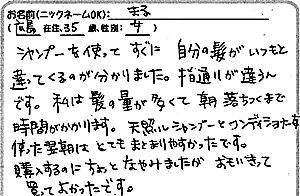 お名前(ニックネームOK): まる
(広島 在住, 35 歳、性別: 女 )
シャンプーを使って すぐに 自分の髪が いつもと
違ってくるのが分かりました。指通りが違うん
です。私は髪の量が多くて 朝 落ちつくまで
時間がかかります。天照ルシャンプーとコンディショナーを
使った翌朝は とても まとまりやすかったです。
購入するのに ちょっと なやみましたが おもいきって
買って よかったです。